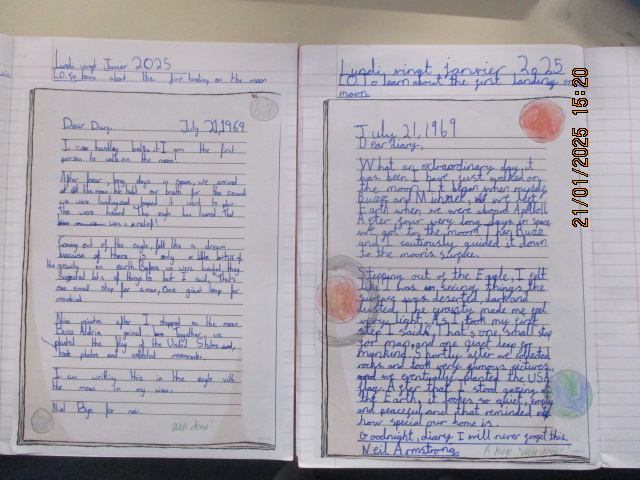 Lundi vingt Janver 2025
LO: to learn about the first landing on the moon
Dear Diary, July 21, 1969
I can hardley it I am the first
person to walk on the moon!
After four long days in space, we arrived
at the moon. We held our breath for the seconds
we were
We were heard The eagle has landed. That
was a relief!
Coming out of the eagle, felt like a dream
because of there is only a the
the gravity on earth. Before we
lots of things to but I said, "That's
one small step for a man, One giant leap for
mankind
Nine minutes after I stepped on the moon
Buzz Aldrin joined Together we
planted the flag of the United States and,
took photos and collected
I am writing this in the eagle with
the moon in my view.
Niel Bye for now.
well done!
Lundi vingt janvier 2025
LO: To learn about the first landing on
moon
July 21, 1969
Dear diary,
What an extraordinary day it
has been I have just walked on
the moon. It began when myself
Buzz and Michael, we left
Earth when we were aboard Apollo11
After four very long days in space
we got to the moon. Then Buzz
and I cautiously guided it down
to the moon's surface.
Stepping out of the Eagle, I felt
like I was seeing things, the
surface was deserted, dark and
dusted. The gravity made me feel
very light. As I took my first
step I said, "That's one small step
for man, and one giant leap for
mankind. Shortly after we collected
rocks and took very famous pictures
and we eventually planted the USA
flag. After that I stood gazing at
the Earth, it looks so quiet, empty
and peaceful, and that reminded me
how special our home is.
Goodnight, diary I will never forget this.
Neil Armstrong
A huge "well done"!
21/01/2025 15:20